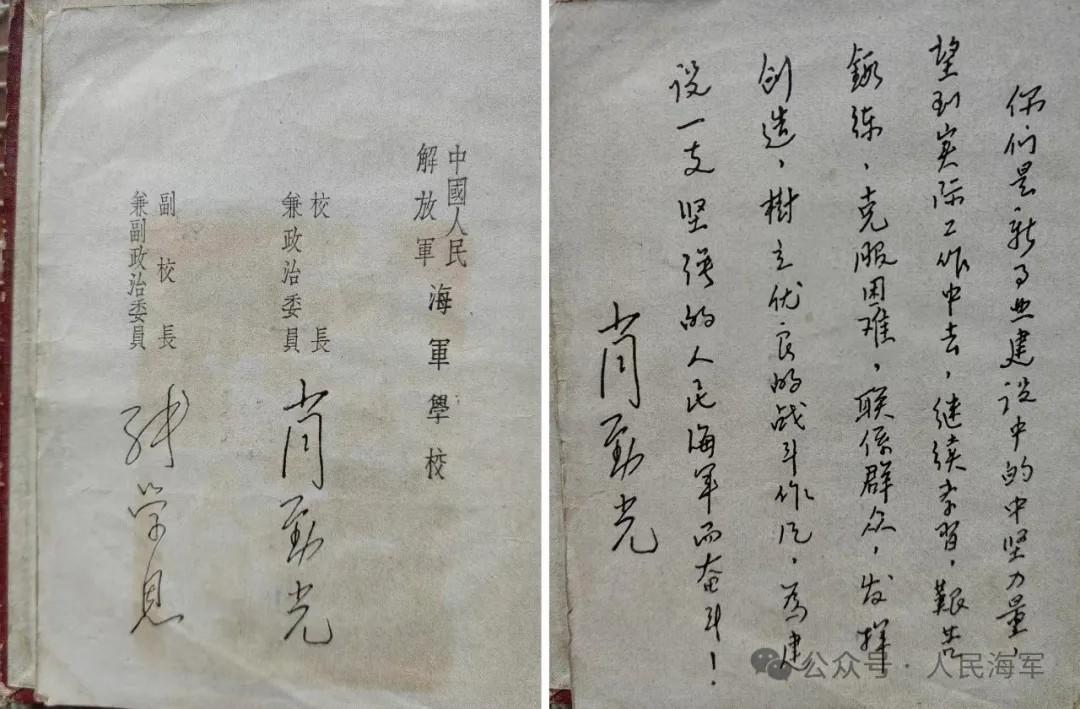 中國人民
解放軍
海軍學校
校長
兼政治委員
肖劲光
副校長
兼副政治委員
张学思
你们是新事业建设中的中坚力量，
望到实际工作中去，继续学習，艱苦
鍛练，克服困难，联係群众，发挥
创造，樹立优良的战斗作风，為建
设一支坚强的人民海军而奋斗！
肖劲光
公众号·人民海军